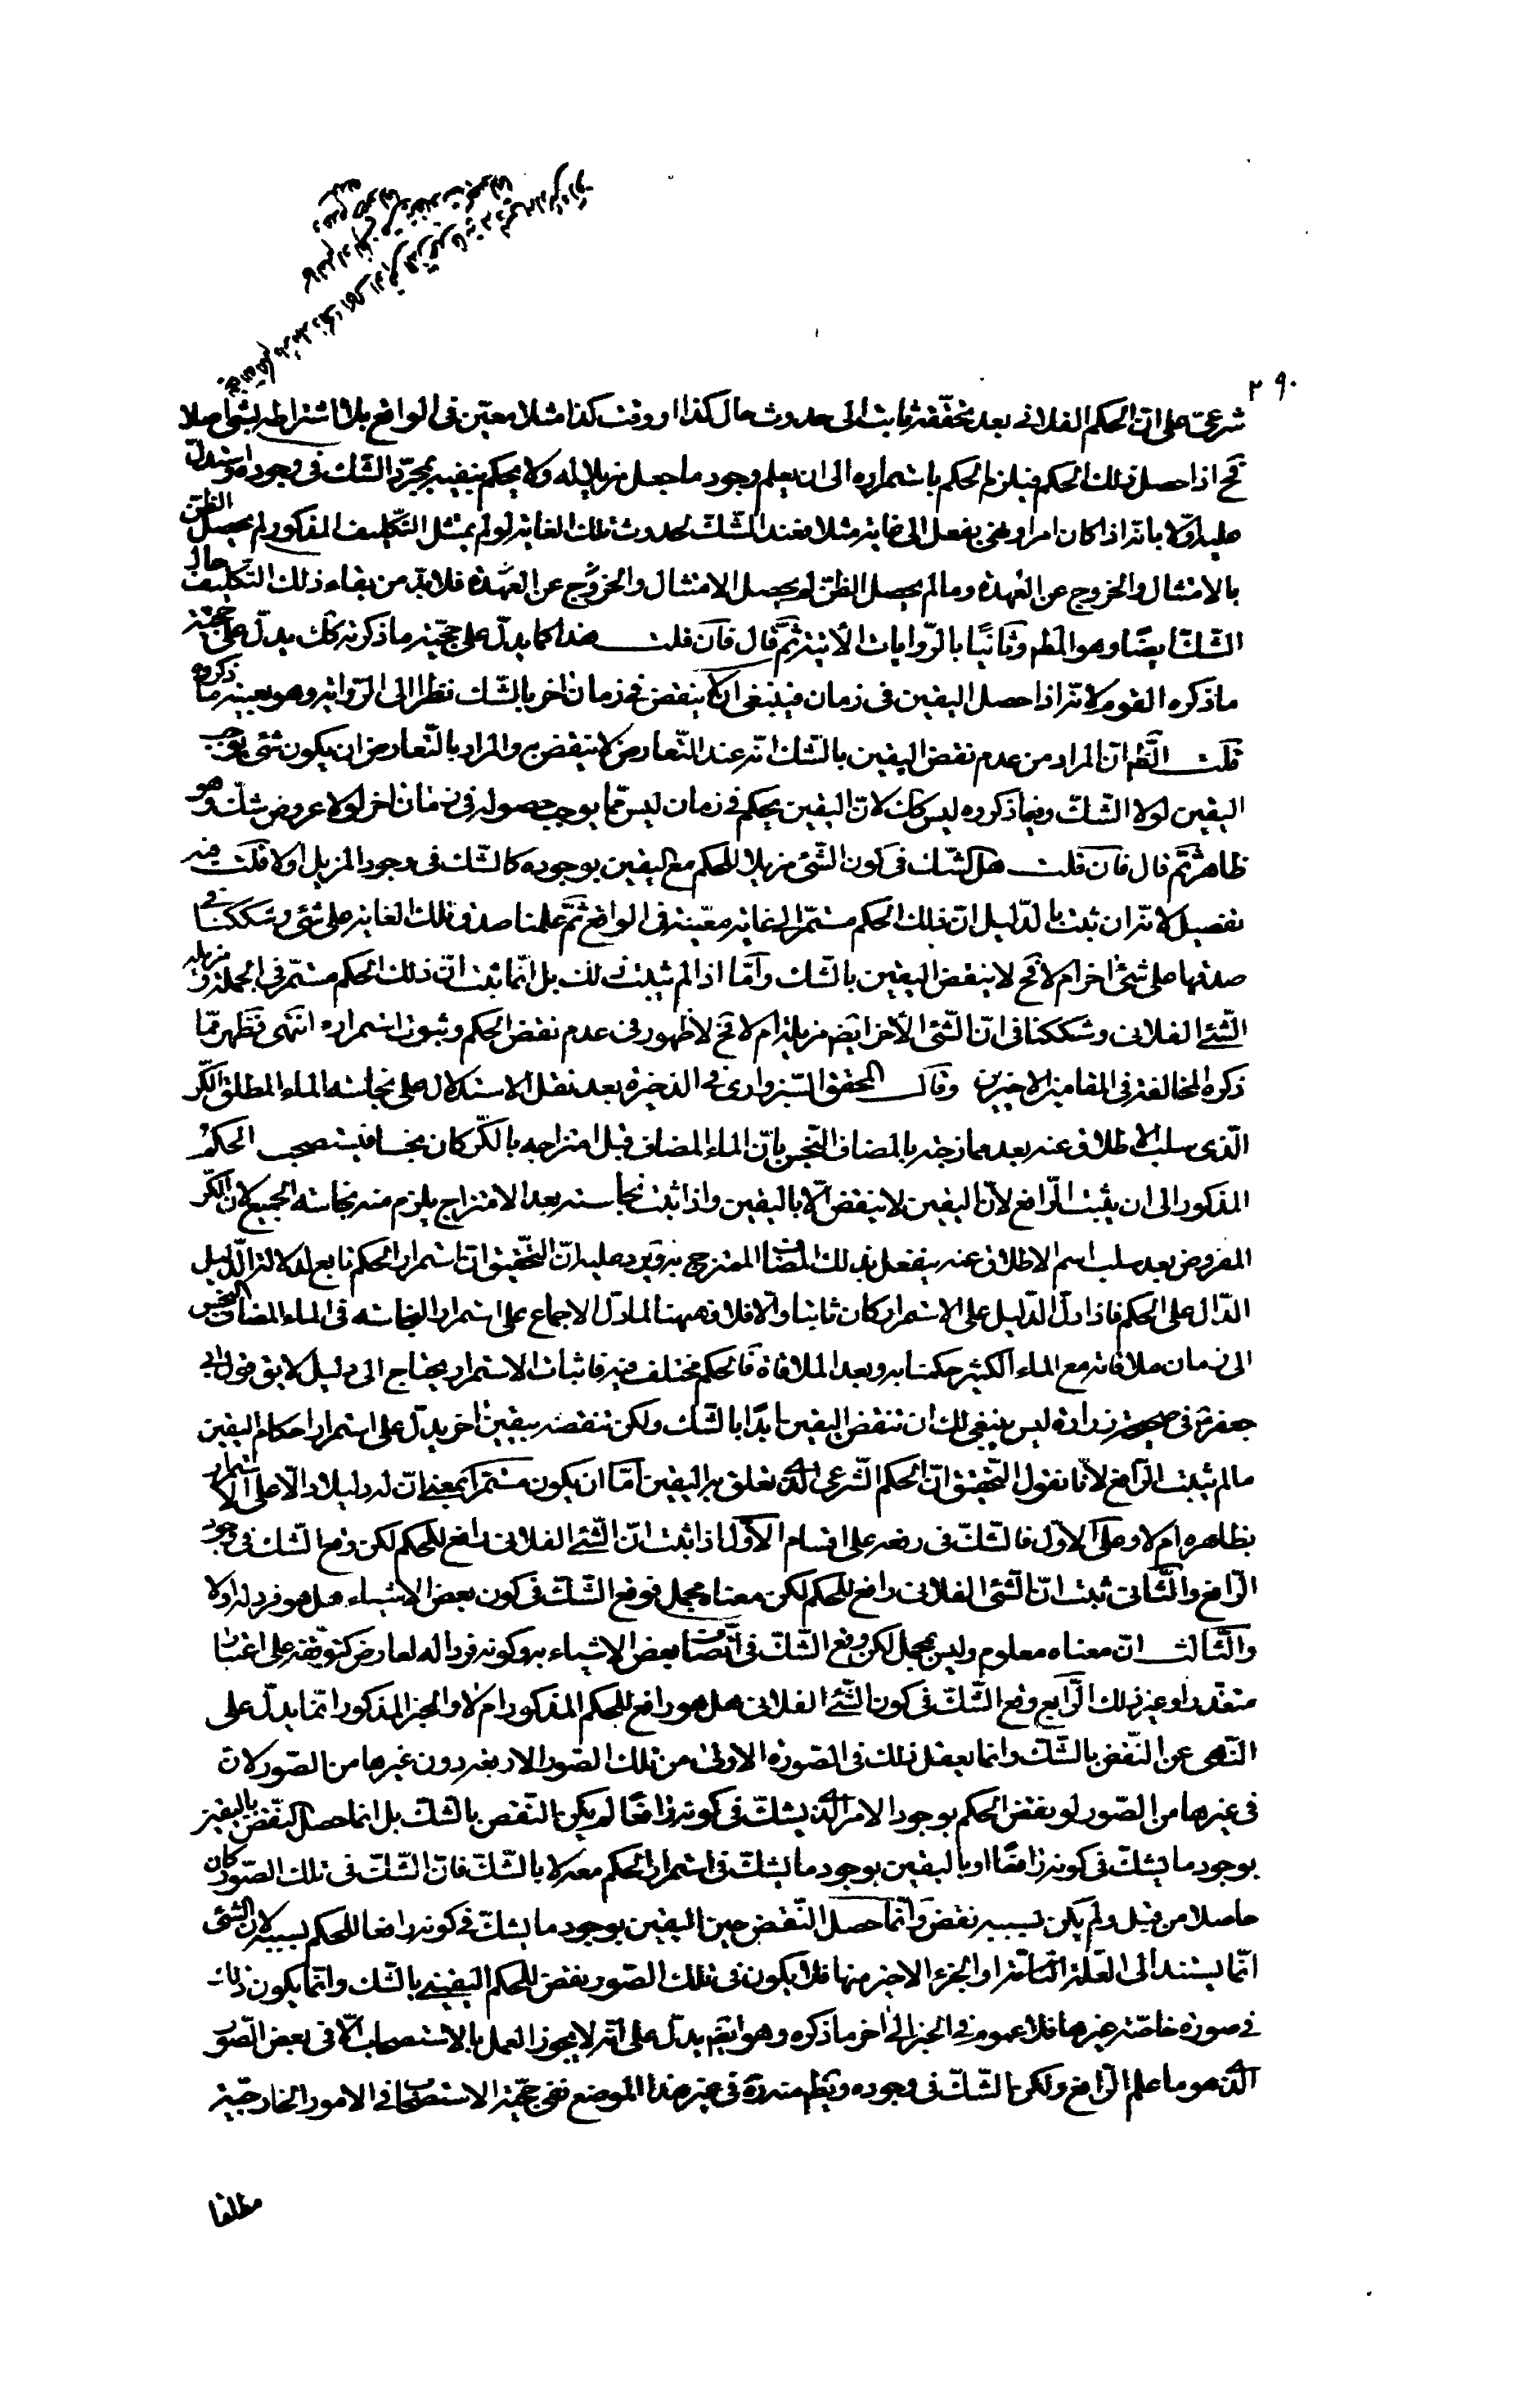 ٢٩٠
شرعى على ان الحكم الفلانى بعد تحققه ثابت الى حدوث حال كذا او وقت كذا مثلا معين فى الواقع بلا اشتراطه بشئ اصلا
فح اذا حصل ذلك الحكم فيلزم الحكم باستمراره الى ان يعلم وجود ما جعل مزيلا له ولا يحكم بنفيه بمجرد الشك فى وجوده واستدل
عليه اولا بانه اذا كان امر او نهى بفعل الى غاية مثلا فعند الشك بحدوث تلك الغاية لو لم يمتثل التكليف المذكور لم يحصل الظن
بالامتثال والخروج عن العهدة وما لم يحصل الظن لم يحصل الامتثال والخروج عن العهدة فلا بد من بقاء ذلك التكليف حال
الشك ايضا وهو المط وثانيا بالروايات الآتية ثم قال فان قلت هذا كما يدل على حجية ما ذكرته كك يدل على حجية
ما ذكره القوم لانه اذا حصل اليقين فى زمان فينبغى ان لا ينقض فى زمان اخر بالشك نظرا الى الرواية وهو بعينه ما ذكروه
قلت الظ ان المراد من عدم نقض اليقين بالشك انه عند التعارض لا ينقض به والمراد بالتعارض ان يكون شئ يوجب
اليقين لولا الشك وفيما ذكروه ليس كك لان اليقين بحكم فى زمان ليس مما يوجب حصوله فى زمان اخر لولا عروض شك وهو
ظاهر ثم قال فان قلت هل الشك فى كون الشئ مزيلا للحكم مع اليقين بوجوده كالشك فى وجود المزيل او لا قلت فيه
تفصيل لانه ان ثبت بالدليل ان ذلك الحكم مستمر الى غاية معينة فى الواقع ثم علمنا صدق تلك الغاية على شئ وشككنا فى
صدقها على شئ اخر ام لا فح لا ينقض اليقين بالشك واما اذا لم يثبت ذلك بل انما ثبت ان ذلك الحكم مستمر فى الجملة ومزيله
الشئ الفلانى وشككنا فى ان الشئ الاخر ايض مزيله ام لا فح لا ظهور فى عدم نقض الحكم وثبوت استمراره انتهى فظهر مما
ذكره المخالفة فى المقامين الاخيرين وقال المحقق السبزوارى فى الذخيرة بعد نقل الاستدلال على نجاسة الماء المطلق الكر
الذى سلب الاطلاق عنه بعد ممازجته بالمضاف النجس بان الماء المضاف قبل امتزاجه بالكر كان نجسا فيستصحب الحكم
المذكور الى ان يثبت الرافع لان اليقين لا ينقض الا باليقين واذا ثبت نجاسته بعد الامتزاج يلزم منه نجاسة الجميع لان الكر
المفروض بعد سلب اسم الاطلاق عنه ينفعل بذلك المضاف الممتزج به ويرد عليه ان التحقيق ان استمرار الحكم تابع لدلالة الدليل
الدال على الحكم فاذا دل الدليل على الاستمرار كان ثابتا والا فلا فههنا لما دل الاجماع على استمرار النجاسة فى الماء المضاف النجس
الى زمان ملاقاته مع الماء الكثير حكمنا به وبعد الملاقاة فالحكم مختلف فيه فاثبات الاستمرار يحتاج الى دليل لا يق قول ابى
جعفر ع فى صحيحة زرارة ليس ينبغى لك ان تنقض اليقين ابدا بالشك ولكن تنقضه بيقين اخر يدل على استمرار احكام اليقين
ما لم يثبت الرافع لانا نقول التحقيق ان الحكم الشرعى الذى تعلق به اليقين اما ان يكون مستمرا بمعنى ان له دليلا دالا على الاستمرار
بظاهره ام لا وعلى الاول فالشك فى رفعه على اقسام الاول اذا ثبت ان الشئ الفلانى رافع للحكم لكن وقع الشك فى وجود
الرافع والثانى ثبت ان الشئ الفلانى رافع للحكم لكن معناه مجمل فوقع الشك فى كون بعض الاشياء هل هو فرد له او لا
والثالث ان معناه معلوم وليس بمجمل لكن وقع الشك فى اتصاف بعض الاشياء به وكونه فردا له لعارض كتوقفه على اعتبار
متعذر او غير ذلك الرابع وقع الشك فى كون الشئ الفلانى هل هو رافع للحكم المذكور ام لا والخبر المذكور انما يدل على
النهى عن النقض بالشك وانما يعقل ذلك فى الصورة الاولى من تلك الصور الاربعة دون غيرها من الصور لان
فى غيرها من الصور لو نقض الحكم بوجود الامر الذى يشك فى كونه رافعا لم يكن النقض بالشك بل انما حصل النقض باليقين
بوجود ما يشك فى كونه رافعا او باليقين بوجود ما يشك فى استمرار الحكم معه لا بالشك فان الشك فى تلك الصور كان
حاصلا من قبل ولم يكن بسببه نقض وانما حصل النقض حين اليقين بوجود ما يشك فى كونه رافعا للحكم بسببه لان الشئ
انما يستند الى العلة التامة او الجزء الاخير منها فلا يكون فى تلك الصور نقض للحكم اليقينى بالشك وانما يكون ذلك
فى صورة خاصة غيرها فلا عموم فى الخبر الى اخر ما ذكره وهو ايض يدل على انه لا يجوز العمل بالاستصحاب الا فى بعض الصور
الذى هو ما علم الرافع ولكن الشك فى وجوده ويظهر منه ره فى غير هذا الموضع نفى حجية الاستصحاب فى الامور الخارجية
مطلقا